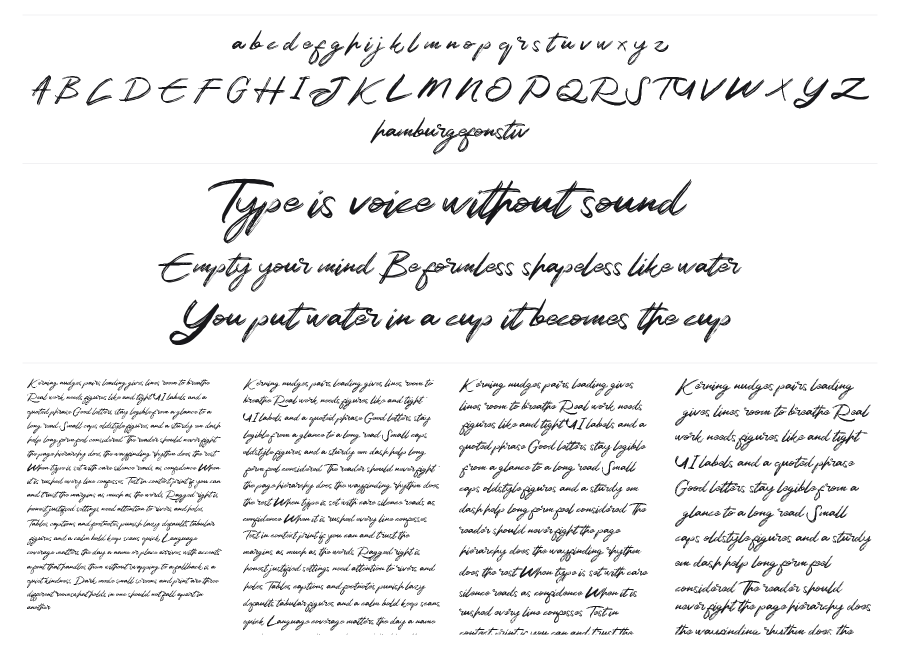 a b c d e f g h i j k l m n o p q r s t u v w x y z
A B C D E F G H I J K L M N O P Q R S T U V W X Y Z
hamburgefonstiv
Type is voice without sound
Empty your mind Be formless shapeless like water
You put water in a cup it becomes the cup
Kerning nudges pairs, leading gives lines room to breathe
Real work needs figures like and tight UI labels, and a
quoted phrase Good letters stay legible from a glance to a
long read Small caps oldstyle figures and a sturdy em dash
help long form feel considered The reader should never fight
the page hierarchy does the wayfinding rhythm does the rest
When type is set with care silence reads as confidence When
it is rushed every line confesses Test in context print if you can
and trust the margins as much as the words Ragged right is
honest justified settings need attention to rivers and holes
Tables, captions, and footnotes punish lazy defaults, tabular
figures and a calm bold keep scans quick Language
coverage matters, the day a name or place arrives with accents
a font that handles them without swapping to a fallback is a
quiet kindness Dark mode small screens and print are three
different rooms what holds in one should not fall apart in
another
Kerning nudges pairs, leading gives lines room to
breathe Real work needs figures like and tight
UI labels, and a quoted phrase Good letters stay
legible from a glance to a long read Small caps
oldstyle figures and a sturdy em dash help long
form feel considered The reader should never fight
the page hierarchy does the wayfinding rhythm does
the rest When type is set with care silence reads as
confidence When it is rushed every line confesses
Test in context print if you can and trust the
margins as much as the words Ragged right is
honest justified settings need attention to rivers and
holes Tables, captions, and footnotes punish lazy
defaults, tabular figures and a calm bold keep scans
quick Language coverage matters, the day a name
Kerning nudges pairs, leading gives
lines room to breathe Real work needs
figures like and tight UI labels, and a
quoted phrase Good letters stay legible
from a glance to a long read Small
caps oldstyle figures and a sturdy em
dash help long form feel considered The
reader should never fight the page
hierarchy does the wayfinding rhythm
does the rest When type is set with care
silence reads as confidence When it is
rushed every line confesses Test in
context print if you can and trust the
Kerning nudges pairs, leading
gives lines room to breathe Real
work needs figures like and tight
UI labels, and a quoted phrase
Good letters stay legible from a
glance to a long read Small
caps oldstyle figures and a sturdy
em dash help long form feel
considered The reader should
never fight the page hierarchy does
the wayfinding rhythm does the